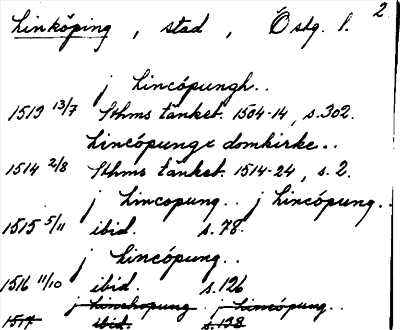 2
Linköping, stad, Östg. l.
j Lincöpungh..
1513 13/7 Sthms tänkeb. 1504-14, s.302.
Lincöpungx domkirke..
1514 2/8 Sthms tänkeb. 1514-24, s. 2.
j Lincopung.. j Lincöpung..
1515 5/11 ibid. s.78.
j Lincöpung..
1516 11/10 ibid. s.126
j Linchopung.. j Lincöpung..
1517 ibid. s.138